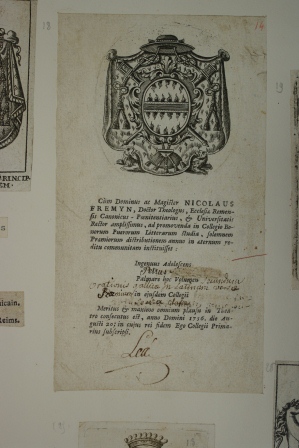 18
14
19
19
Cùm Dominus ac Magister NICOLAUS
FREMYN, Doctor Theologus, Ecclesiæ Remen-
sis Canonicus - Pœnitentiarius, & Universitatis
Rector amplissimus, ad promovenda in Collegio Bo-
norum Puerorum Litterarum studia, solemnem
Præmiorum distributionem annuo in æternum re-
ditu communitam instituisset
Ingenuus Adolescens
Palmare hoc Volumen
in ejusdem Collegii
Meritus & maximo omnium plausu in
consecutus est, anno Domini 1736. die Au-
gusti 20: in cujus rei fidem Ego Collegii Prima-
rius subscripsi.
PRINCIP
EM.
nicain.
Reims.